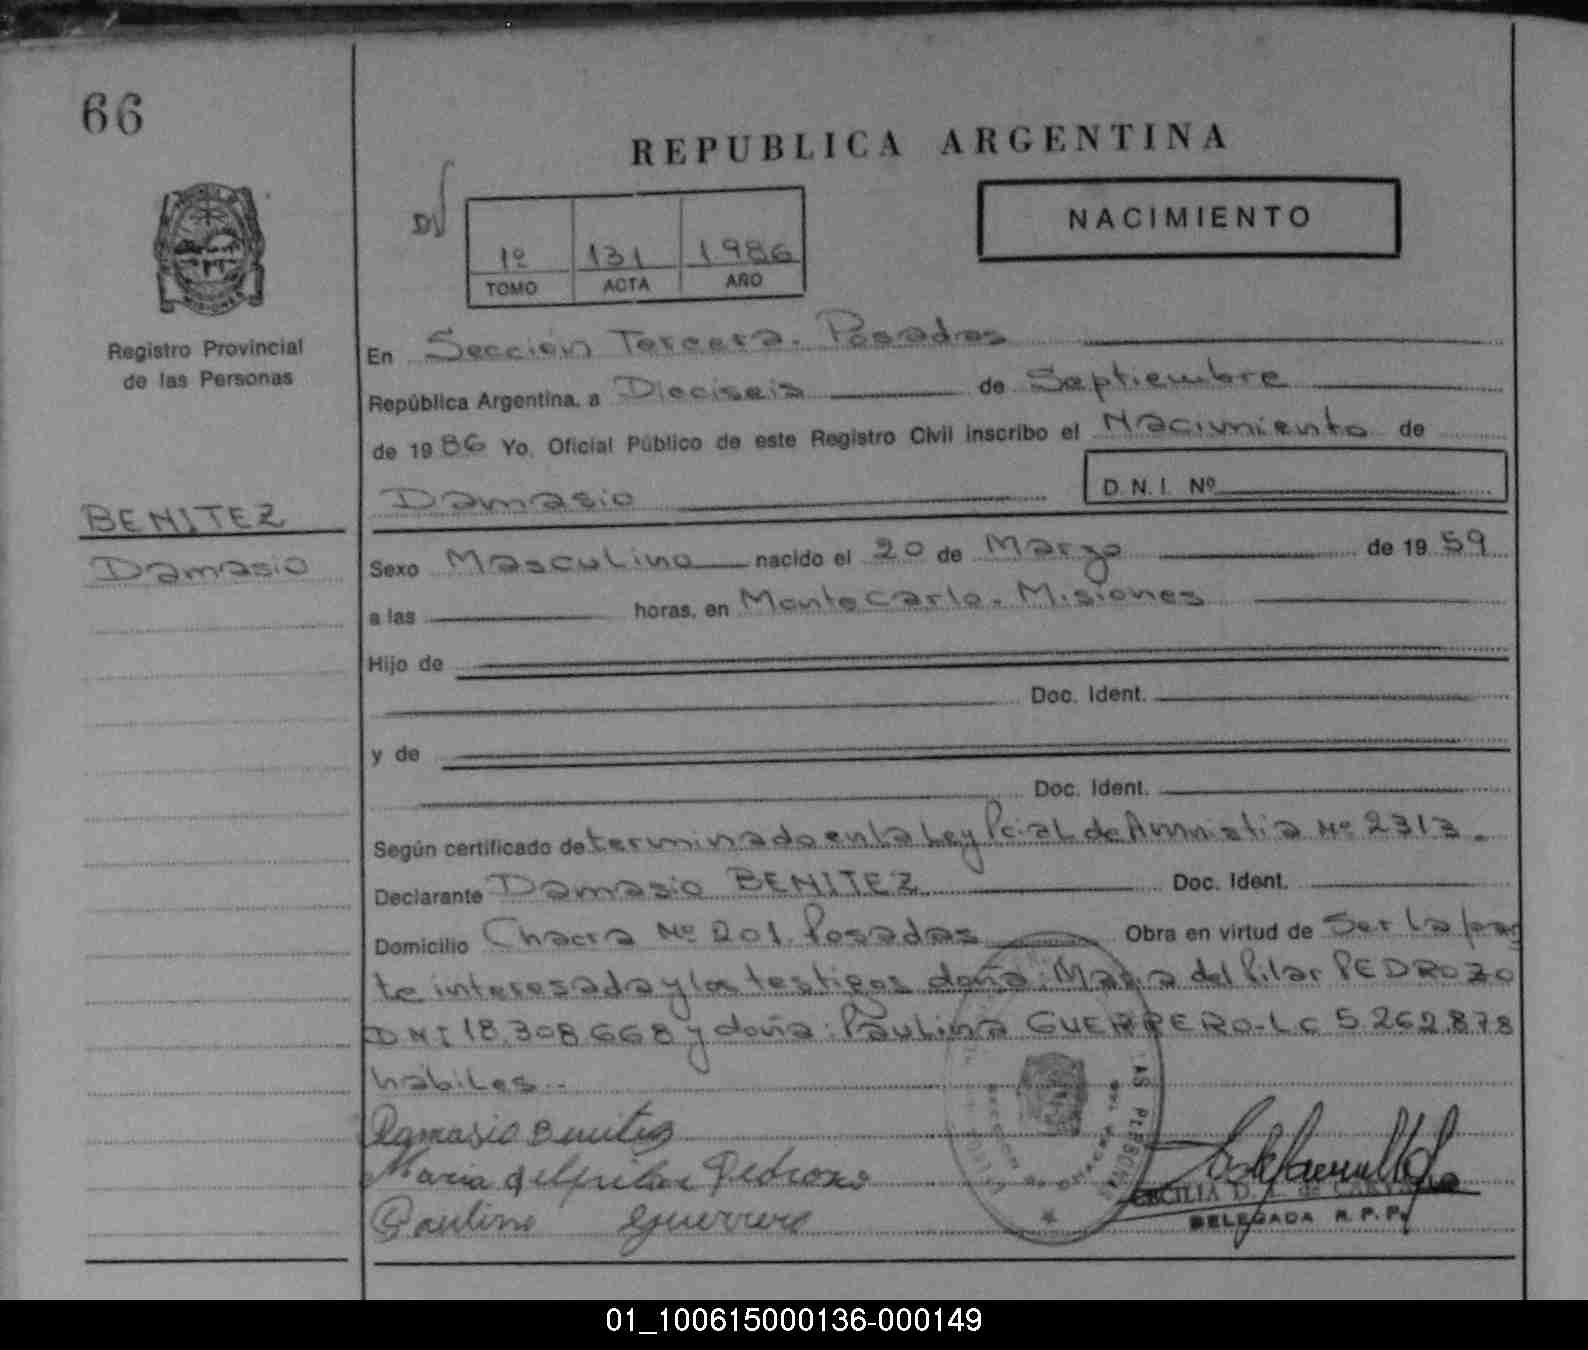 66
REPUBLICA ARGENTINA
NACIMIENTO
1º 131 1986
TOMO ACTA AÑO
MISIONES
Registro Provincial
de las Personas
En Sección Tercera. Posadas
República Argentina, a Dieciseis de Septiembre
de 1986 Yo, Oficial Público de este Registro Civil inscribo el Nacimiento de
Damasio D.N.I. Nº
BENITEZ
Damasio
Sexo Masculino nacido el 20 de Marzo de 1959
a las horas, en Montecarlo. Misiones
Hijo de
Doc. Ident.
y de
Doc. Ident.
Según certificado determinado en la Ley Pcial de Amnistia Nº 2313.
Declarante Damasio BENITEZ Doc. Ident.
Domicilio Chacra Nº 201. Posadas Obra en virtud de Ser la par
te interesada y los testigos doña: Maria del Pilar PEDROZO
DNI 18.308.668 y doña: Paulina GUERRERO-LC 5.262.878
habiles..
Damasio Benitez
Maria del pilar Pedrozo
Paulina Guerrero
CECILIA D.
DELEGADA R.P.P.
01_100615000136-000149